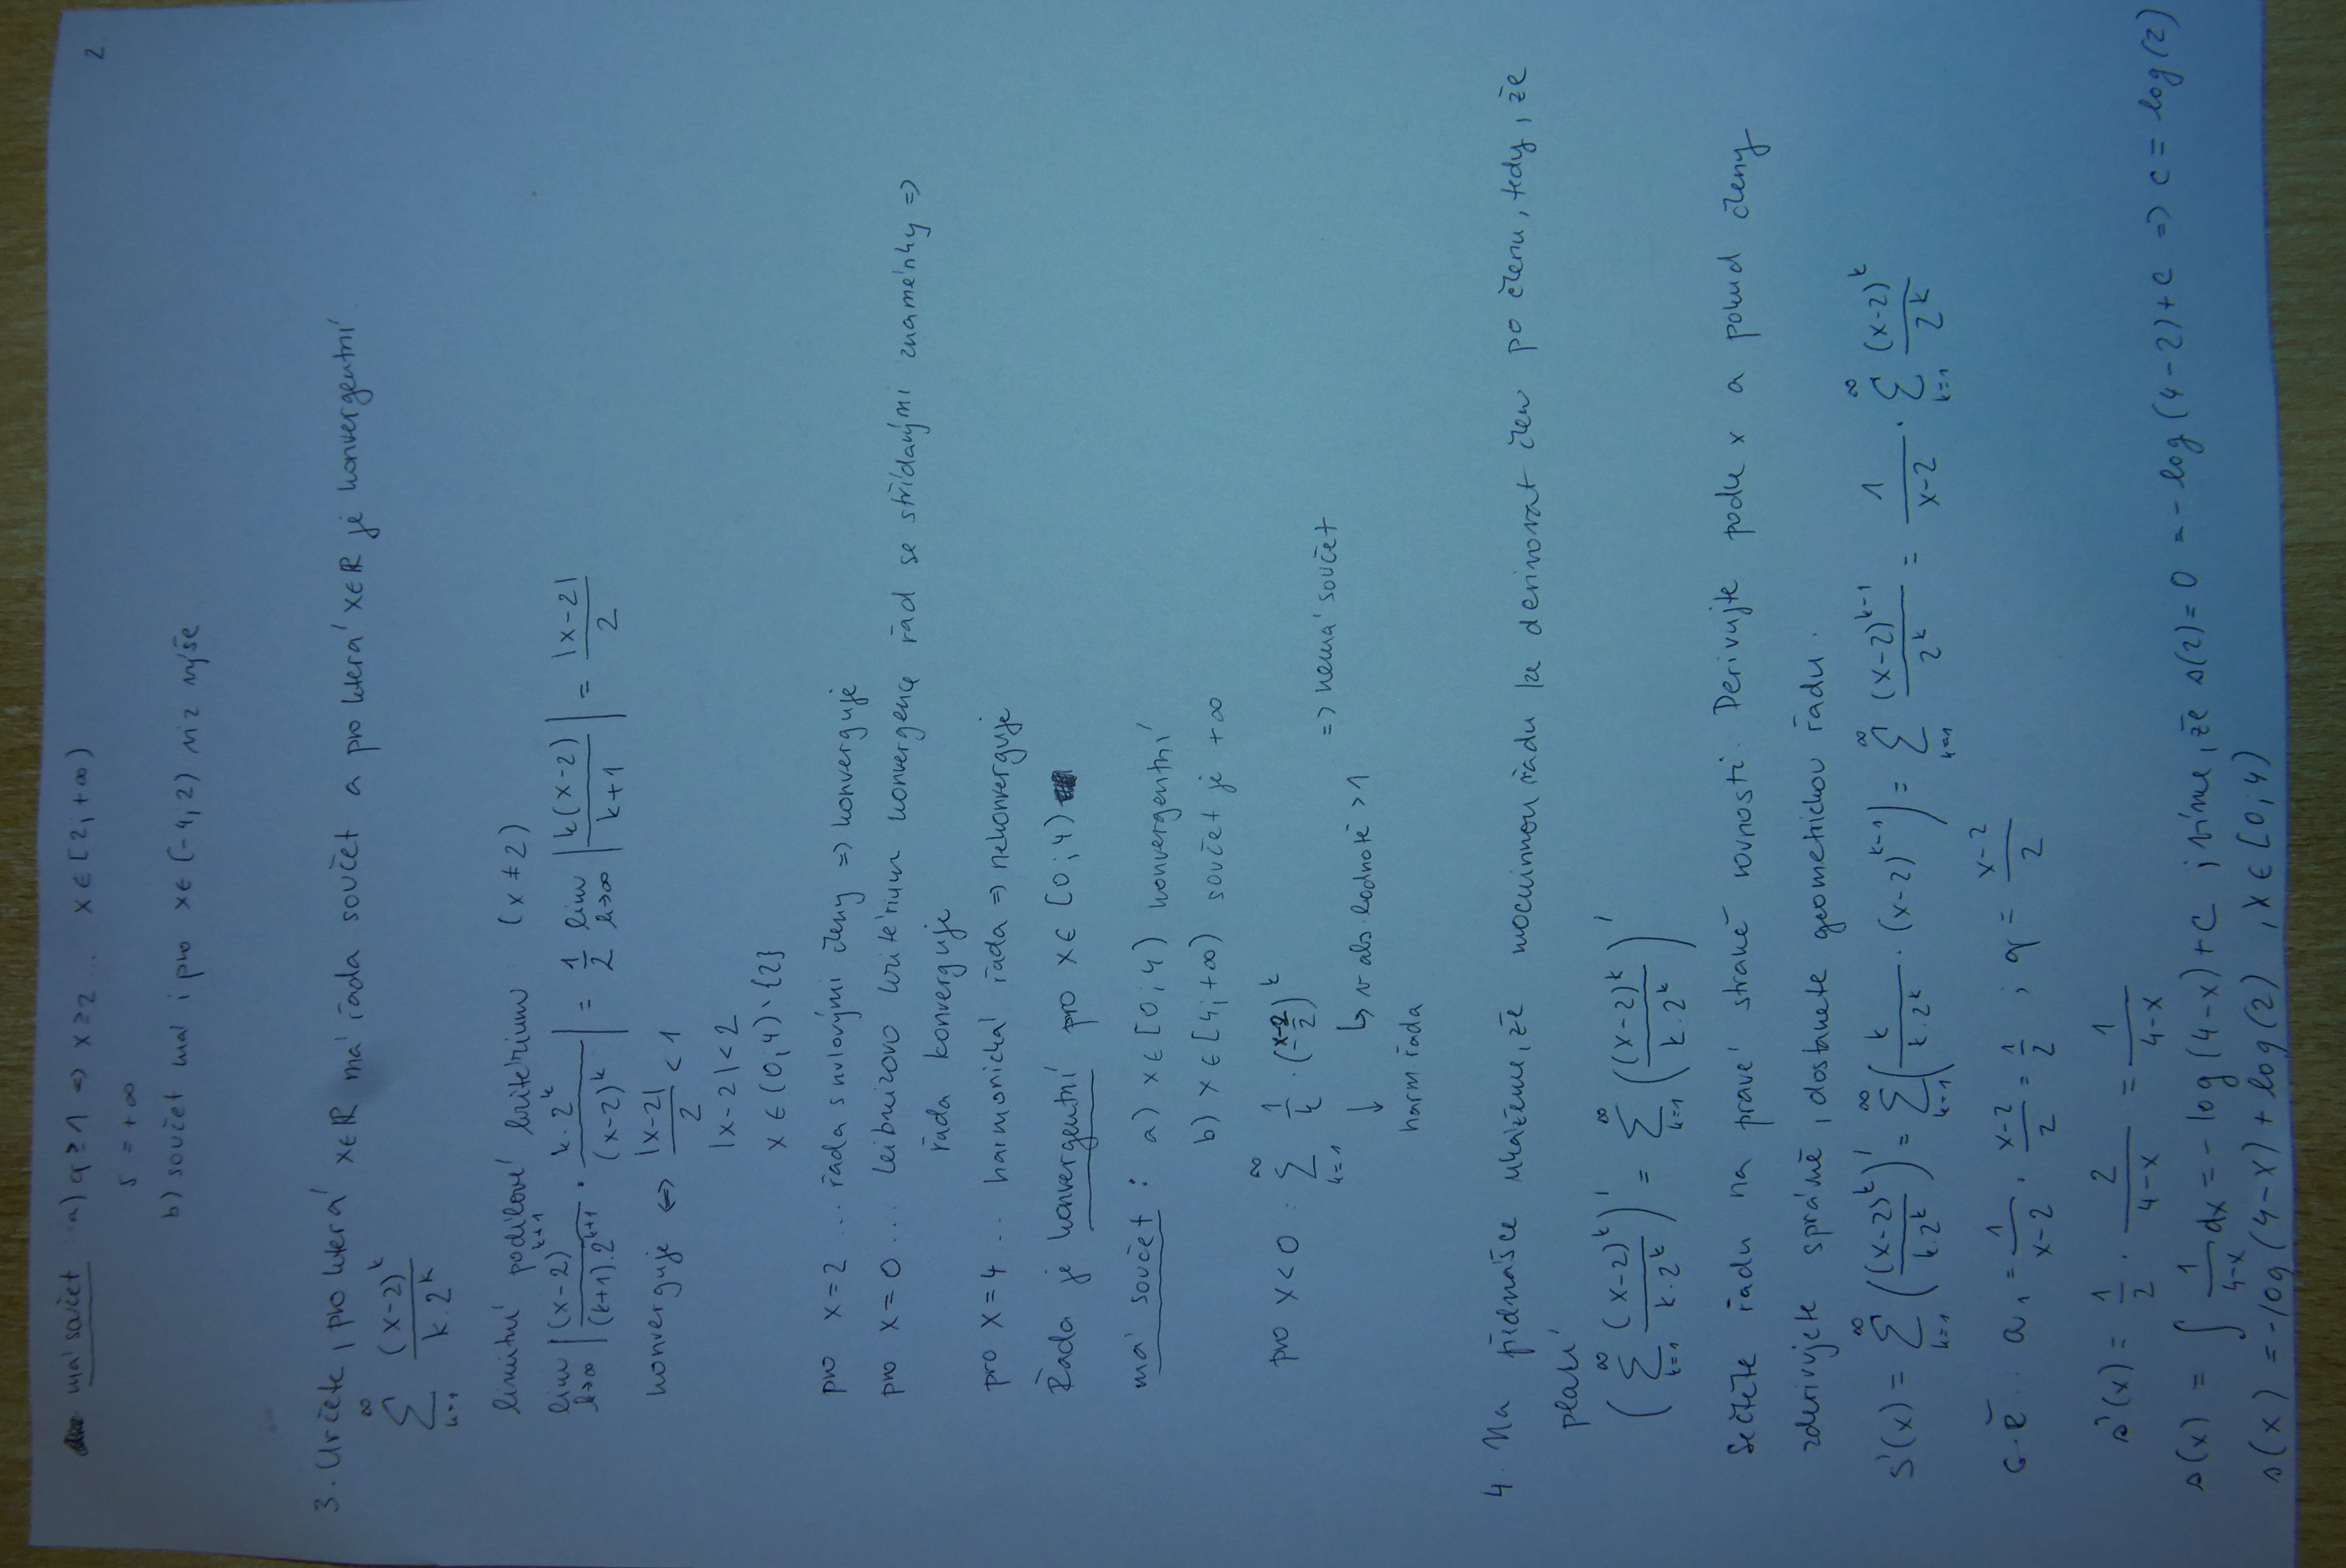 2.
má součet a) q ≥ 1 => x ≥ 2 ... x ∈ [2, +∞)
s = +∞
b) součet má i pro x ∈ (-4, 2) viz výše
3. Určete, pro která x∈R má řada součet a pro která x∈R je konvergentní
∑_{k=1}^{∞} (x-2)^k / (k · 2^k)
limitní podílové kritérium (x ≠ 2)
lim_{k→∞} | (x-2)^{k+1} / ((k+1) · 2^{k+1}) · k · 2^k / (x-2)^k | = 1/2 lim_{k→∞} | k(x-2) / (k+1) | = |x-2| / 2
konverguje <=> |x-2| / 2 < 1
|x-2| < 2
x ∈ (0, 4) \ {2}
pro x = 2 ... řada s nulovými členy => konverguje
pro x = 0 ... Leibnizovo kritérium konvergence řad se střídavými znaménky =>
řada konverguje
pro x = 4 .. harmonická řada => nekonverguje
Řada je konvergentní pro x ∈ [0; 4)
má součet : a) x ∈ [0; 4) konvergentní
b) x ∈ [4, +∞) součet je +∞
pro x < 0 : ∑_{k=1}^{∞} 1/k · ((x-2)/2)^k => nemá součet
↳ v abs. hodnotě > 1
↓
harm. řada
4. Na přednášce ukážeme, že mocninnou řadu lze derivovat člen po členu, tedy, že
platí
( ∑_{k=1}^{∞} (x-2)^k / (k · 2^k) )' = ∑_{k=1}^{∞} ( (x-2)^k / (k · 2^k) )'
Sečtěte řadu na pravé straně rovnosti. Derivujte podle x a pokud členy
zderivujete správně, dostanete geometrickou řadu.
s'(x) = ∑_{k=1}^{∞} ( (x-2)^k / (k·2^k) )' = ∑_{k=1}^{∞} ( k / (k · 2^k) · (x-2)^{k-1} ) = ∑_{k=1}^{∞} (x-2)^{k-1} / 2^k = 1 / (x-2) · ∑_{k=1}^{∞} (x-2)^k / 2^k
G.Ř... a₁ = 1 / (x-2) · (x-2) / 2 = 1/2 ; q = (x-2) / 2
s'(x) = 1/2 · 2 / (4-x) = 1 / (4-x)
s(x) = ∫ 1 / (4-x) dx = -log (4-x) + C ; víme, že s(2) = 0 = -log (4-2) + c => c = log (2)
s(x) = -log (4-x) + log (2) , x ∈ [0; 4)